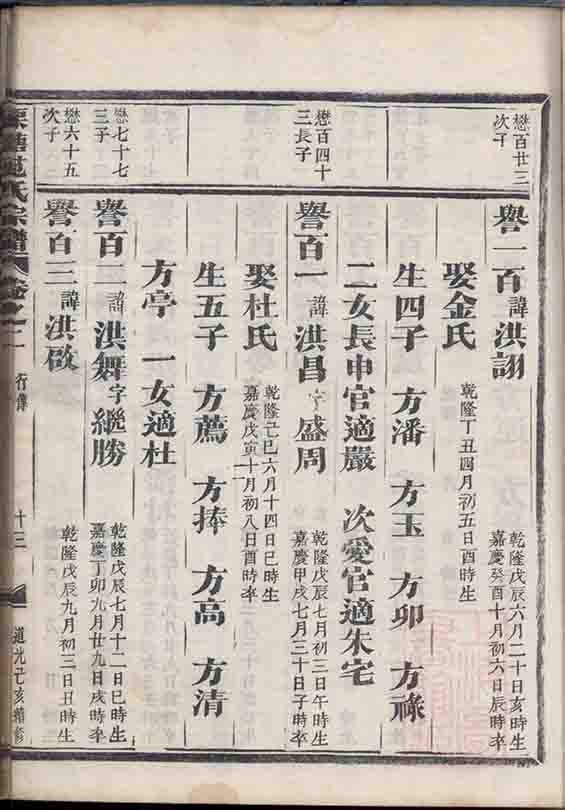 懋百廿三
次子
譽一百 諱洪詡
乾隆戊辰六月二十日亥時生
嘉慶癸酉十月初六日辰時卒
娶金氏 乾隆丁丑四月初五日酉時生
生四子 方潘 方玉 方卯 方祿
二女長申官適嚴 次愛官適朱宅
懋百四十
三長子
譽百一 諱洪昌 字盛周
乾隆戊辰七月初三日午時生
嘉慶甲戌七月三十日子時卒
娶杜氏
乾隆己巳六月十四日巳時生
嘉慶戊寅十月初八日酉時卒
生五子 方薦 方捧 方高 方清
方亭 一女適杜
懋七十七
三子
譽百二 諱洪舞 字縱勝
乾隆戊辰七月十二日巳時生
嘉慶丁卯九月廿九日戌時卒
懋六十五
次子
譽百三 諱洪啟
乾隆戊辰九月初三日丑時生
氏宗譜 卷之一 行傳 十三 道光己亥續修